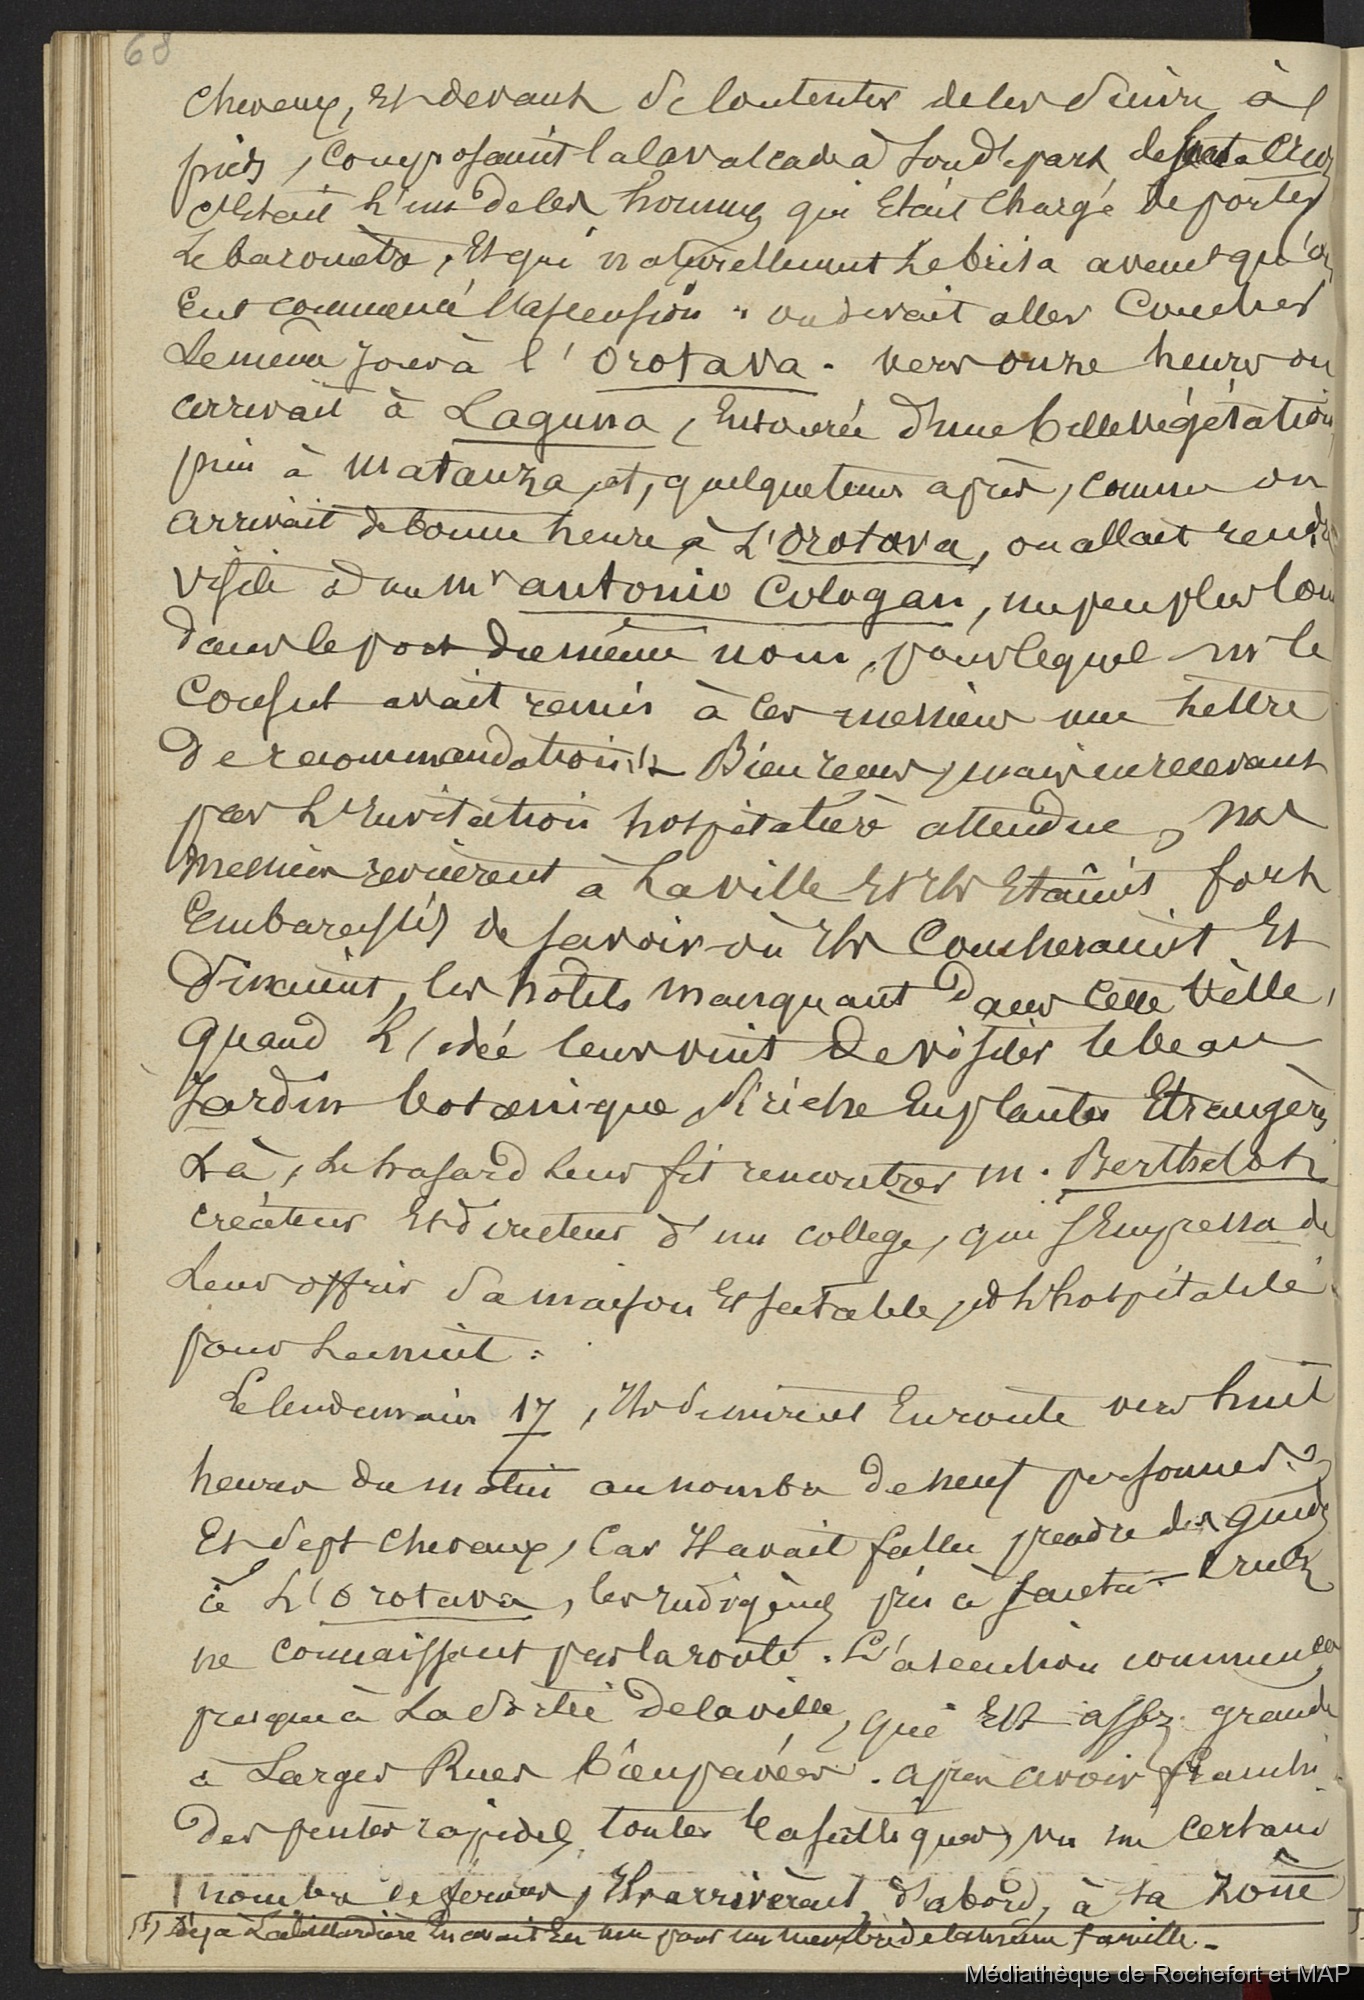 68
chevaux, et devant se contenter de les suivre à
pieds, composaient la cavalcade à son départ de Santa Cruz
C'était l'un de ces hommes qui était chargé de porter
le baromètre, et qui naturellement le brisa avant qu'on
eut commencé l'ascension. on devait aller coucher
le même jour à l'Orotava. vers onze heures on
arrivait à Laguna, entourée d'une belle végétation
puis à Matanza, et, quelque tems après, comme on
arrivait de bonne heure à L'Orotava, on allait rendre
visite à un Mr antonio Cologan, un peu plus loin
dans le port du même nom, pour lequel mr le
Consul avait remis à ces messieurs une lettre
de recommandation (1) Bien reçus, mais ne recevant
pas l'invitation hospitalière attendue, nos
messieurs revinrent à la ville et ils étaient fort
embarassés de savoir où ils coucheraient et
dinaient, les hôtels manquant dans cette ville,
quand l'idée leur vint de visiter le beau
Jardin botanique, si riche en plantes étrangères
Là, le hasard leur fit rencontrer m. Berthelot
créateur et directeur d'un collège, qui s'empressa de
leur offrir sa maison et sa table, et l'hospitalité
pour la nuit.
Le lendemain 17, ils se mirent en route vers huit
heures du matin au nombre de neuf personnes
et sept chevaux, car il avait fallu prendre des guides
à L'Orotava, les indigènes pris à Santa-Cruz
ne connaissant pas la route. L'ascension commença
presque à la sortie de la ville, qui est assez grande
à larges rues bien pavées. après avoir franchi
des pentes rapides, toutes basaltiques, vu un certain
nombre de fermes, ils arrivèrent, d'abord, à la zone
(1) Déjà Labillardière en avait eu une pour un membre de la même famille.
Médiathèque de Rochefort et MAP